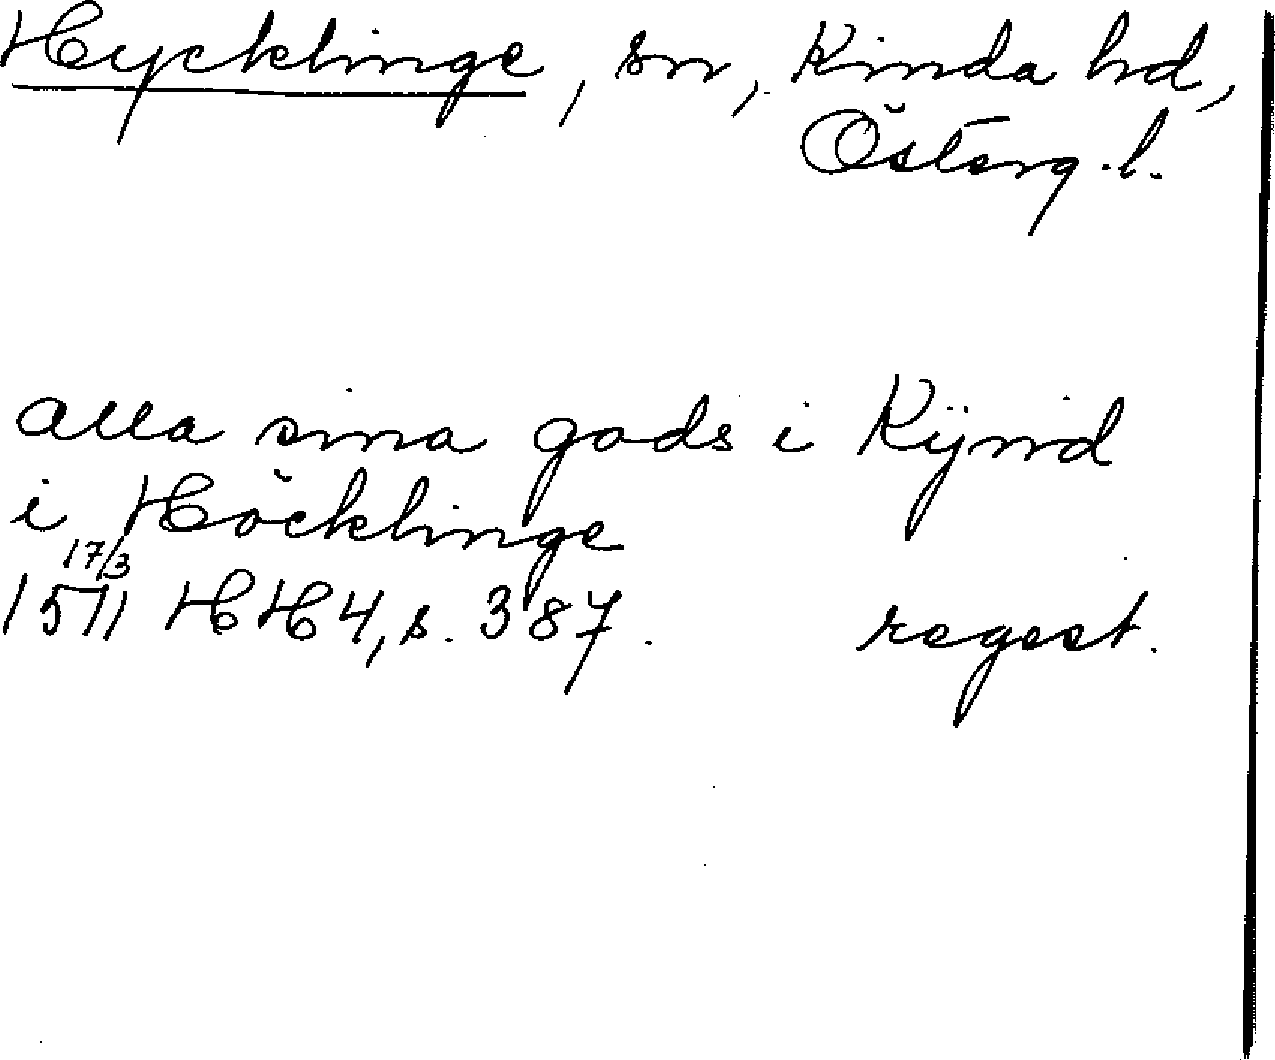 Hycklinge, sn, Kinda hd,
Österg. l.
alla sina gods i Kÿnd
i Höcklinge
17/3
1511 HH4, s. 387. regest.